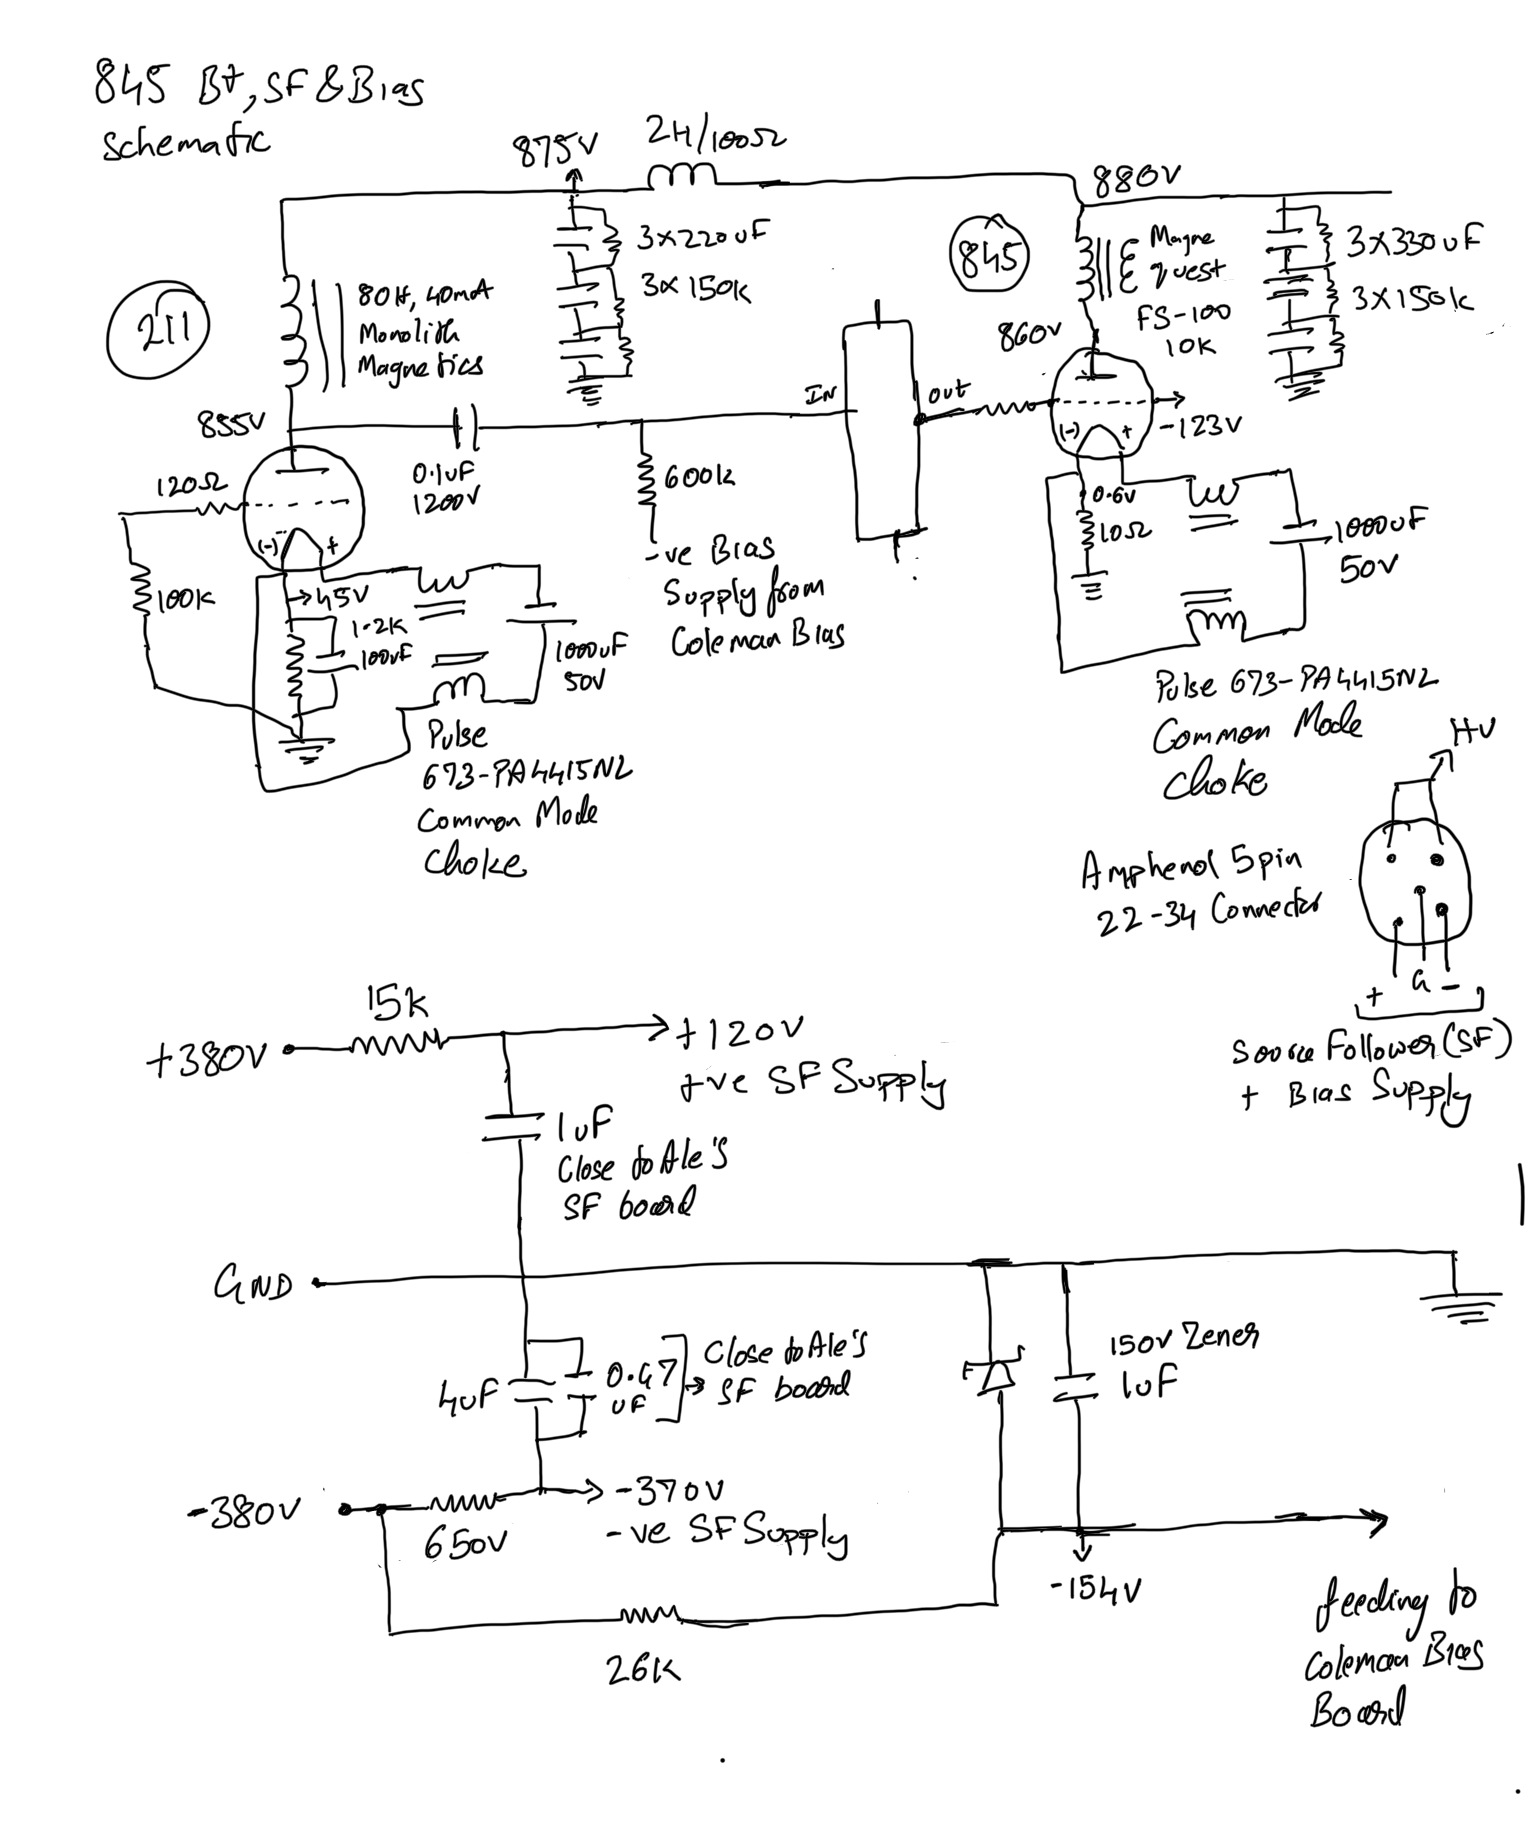 845 B+, SF & Bias
Schematic
875V
2H/100Ω
880V
211
80H, 40mA
Monolith
Magnetics
3x220uF
3x150K
845
Magne
quest
FS-100
10K
3x330uF
3x150K
860V
855V
0.1uF
1200V
In
out
-123V
120Ω
600k
(-) +
(-) +
0.6V
10Ω
1000uF
50V
-ve Bias
Supply from
Coleman Bias
100K
45V
1.2K
100uF
1000uF
50V
Pulse
673-PA4415NL
Common Mode
Choke
Pulse 673-PA4415NL
Common Mode
Choke
HV
Amphenol 5pin
22-34 Connector
+ G -
Source Follower (SF)
+ Bias Supply
15K
+380V
+120V
+ve SF Supply
1uF
Close to Ale's
SF board
GND
4uF
0.47
uF
Close to Ale's
SF board
150V Zener
1uF
-380V
650V
-370V
-ve SF Supply
-154V
26K
feeding to
Coleman Bias
Board